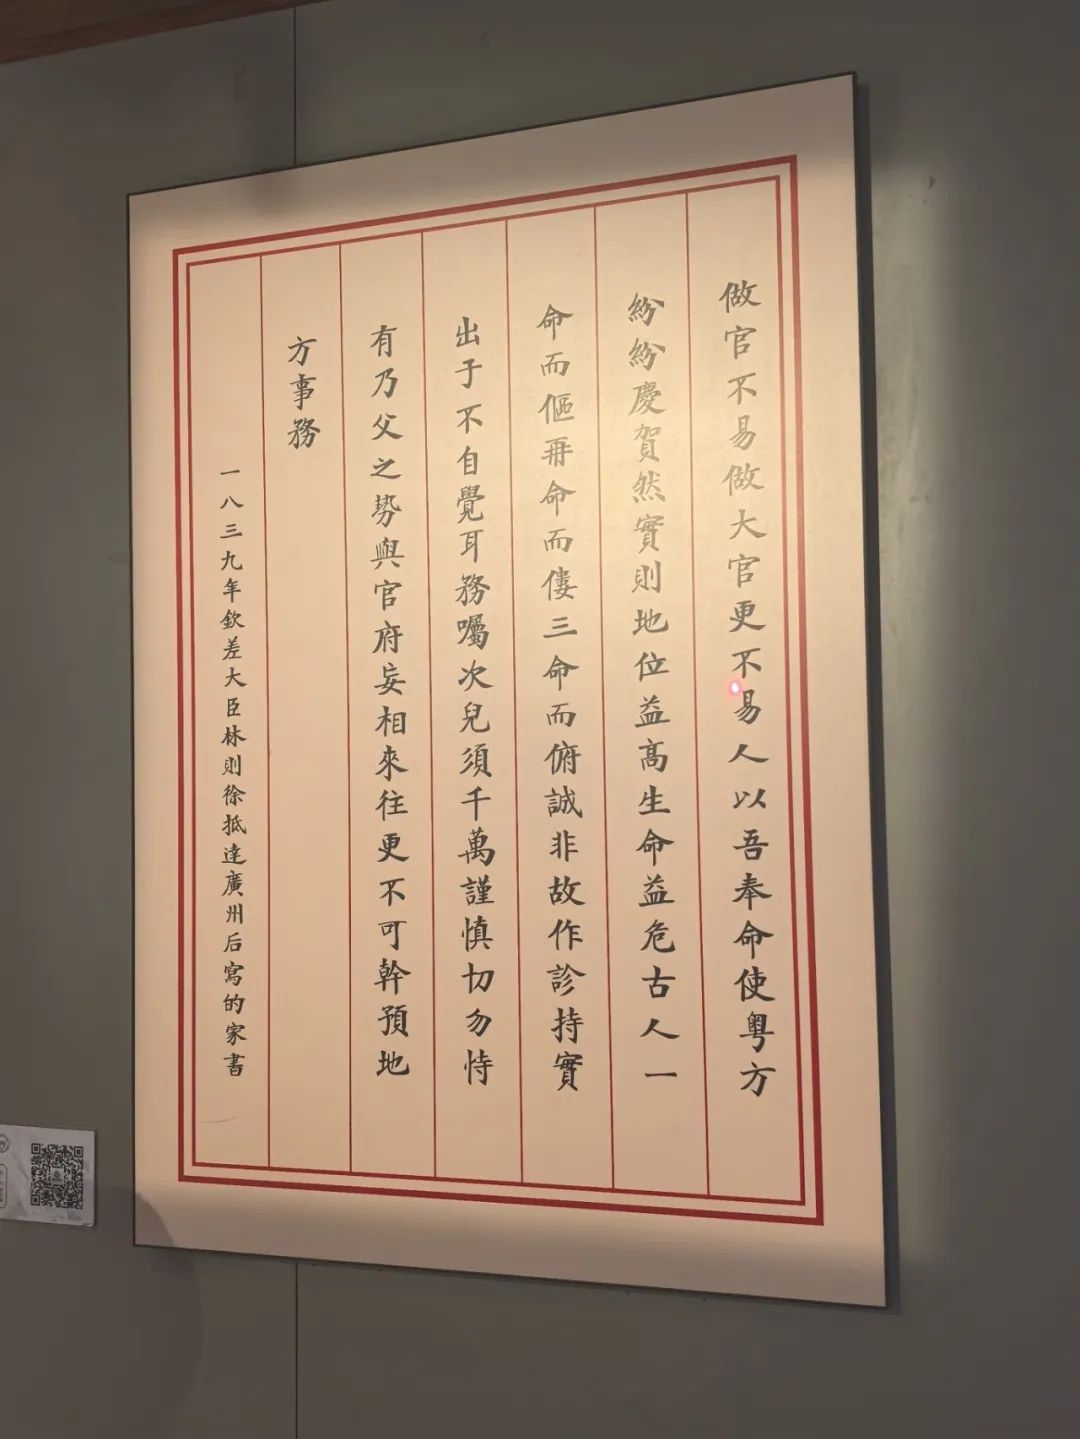 做官不易做大官更不易人以吾奉命使粤方
紛紛慶賀然實則地位益高生命益危古人一
命而傴再命而僂三命而俯誠非故作診持實
出于不自覺耳務囑次兒須千萬謹慎切勿恃
有乃父之势與官府妄相來往更不可幹預地
方事務
一八三九年欽差大臣林則徐抵達廣州后寫的家書